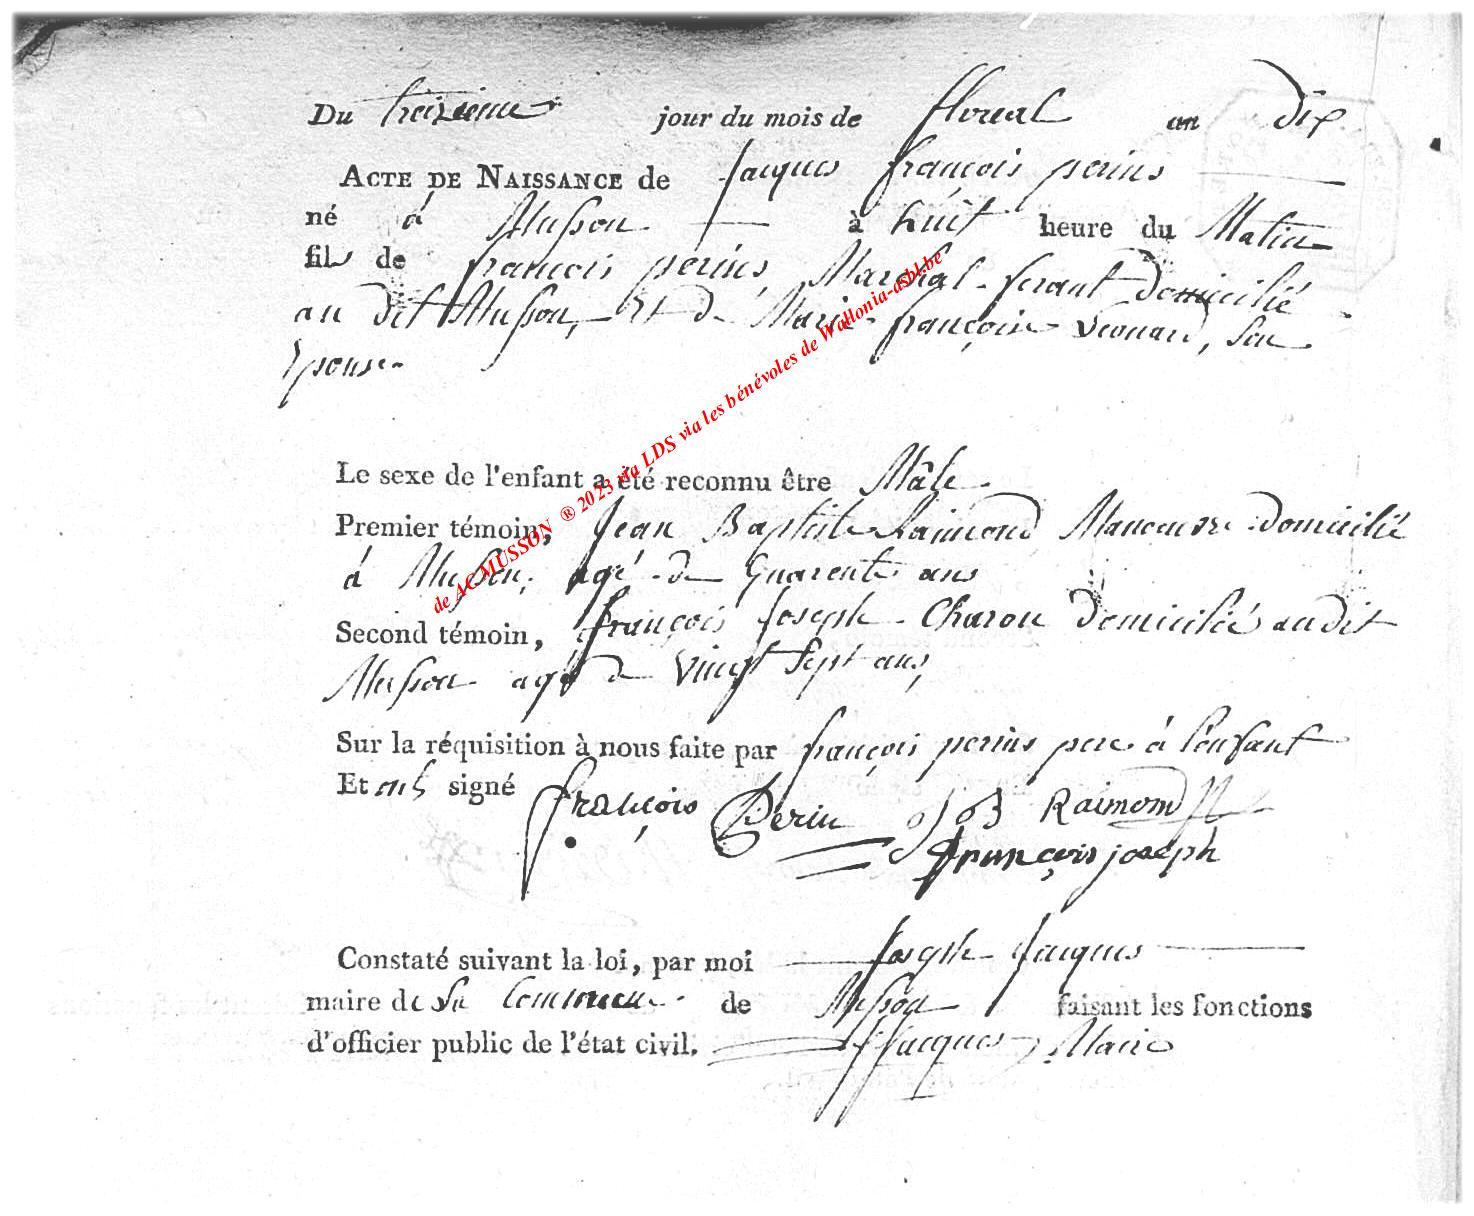 Du treizieme jour du mois de floreal an dix
ACTE DE NAISSANCE de Jacques françois perins
né á Musson à huit heure du Matin
fils de françois perins, Marechal ferant domicilié
au dit Musson, Et de Marie françoise Leonard, son
Epouse
Le sexe de l'enfant a été reconnu être Mâle
Premier témoin, Jean Baptiste Raimond Manoeuvre domicilié
á Musson, agé de Quarente ans
Second témoin, françois Joseph Charon domicilié audit
Musson agé de Vingt sept ans,
Sur la réquisition à nous faite par françois perins pere á l'enfant
Et ont signé françois Perin J B Raimond
françois joseph
Constaté suivant la loi, par moi Joseph Jacques
maire de la Commune de Musson faisant les fonctions
d'officier public de l'état civil. Jacques Maire
de AC MUSSON ® 2023 via LDS via les bénévoles de Wallonia-asbl.be